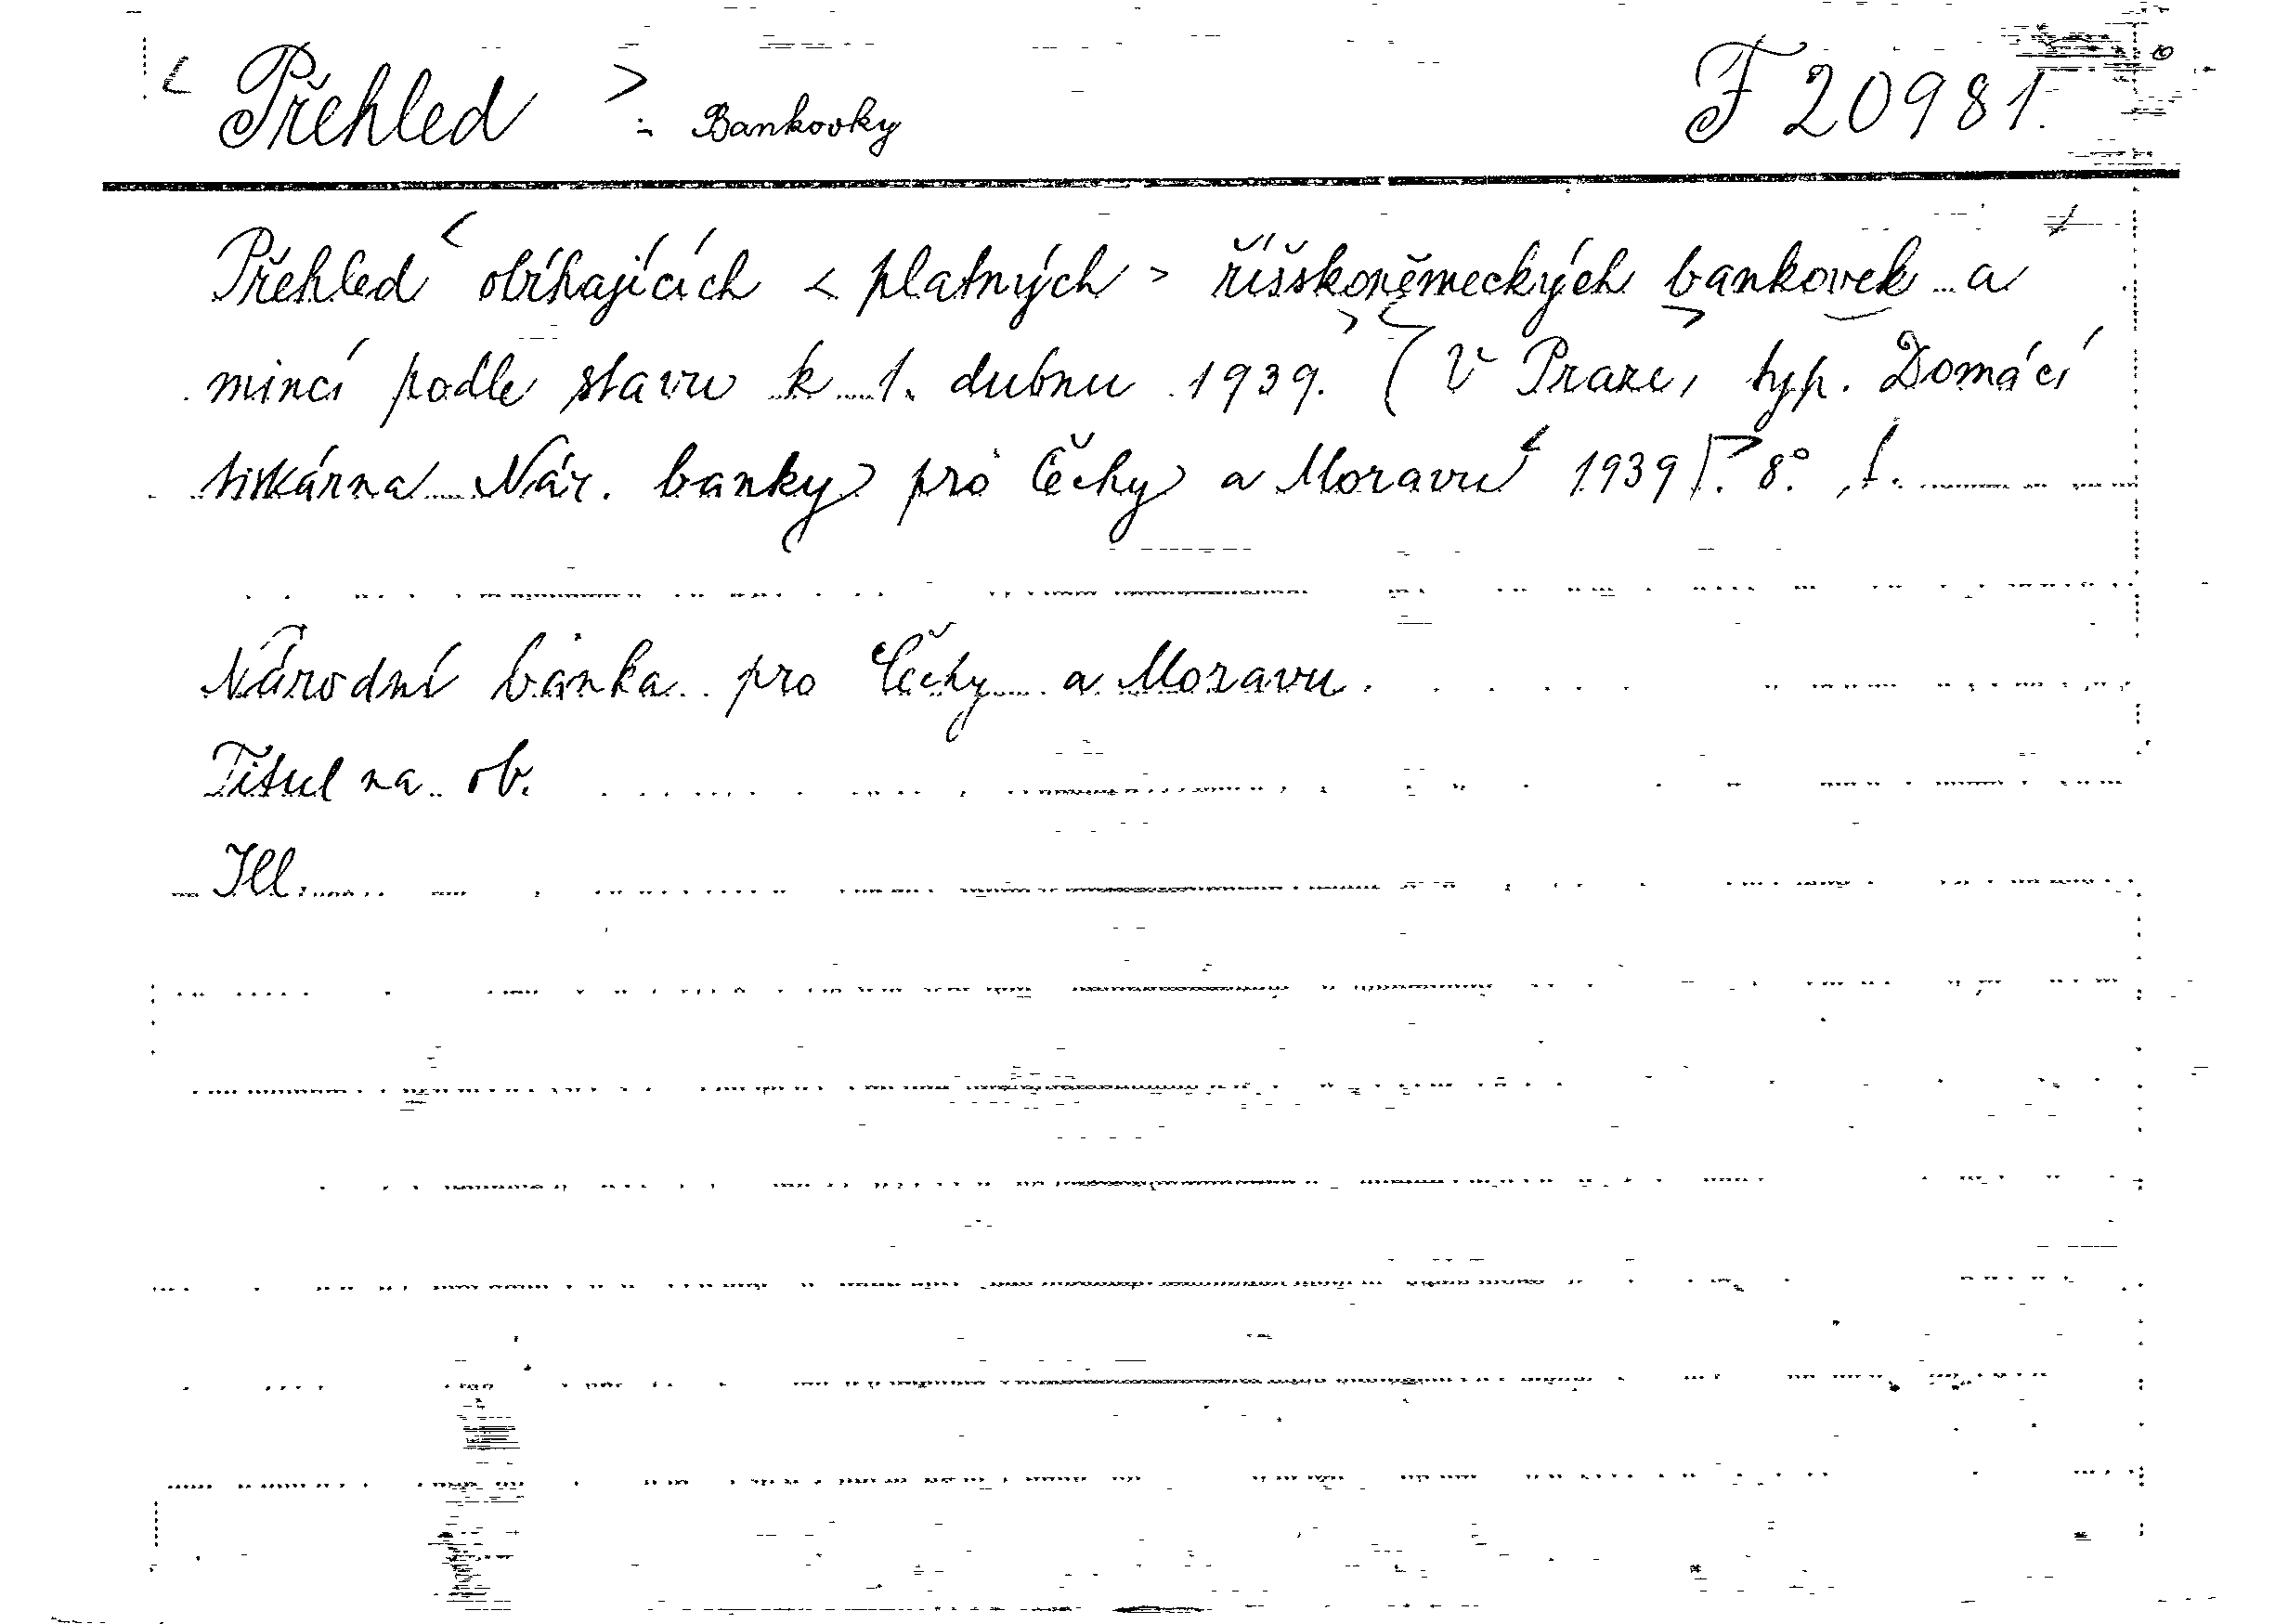 < Přehled > : Bankovky F 20981.
Přehled obíhajících < platných > říšskoněmeckých bankovek a
mincí podle stavu k 1. dubnu 1939. (V Praze, typ. Domácí
tiskárna Nár. banky pro Čechy a Moravu 1939). 8°
Národní banka pro Čechy a Moravu.
Titul na ob.
Ill.